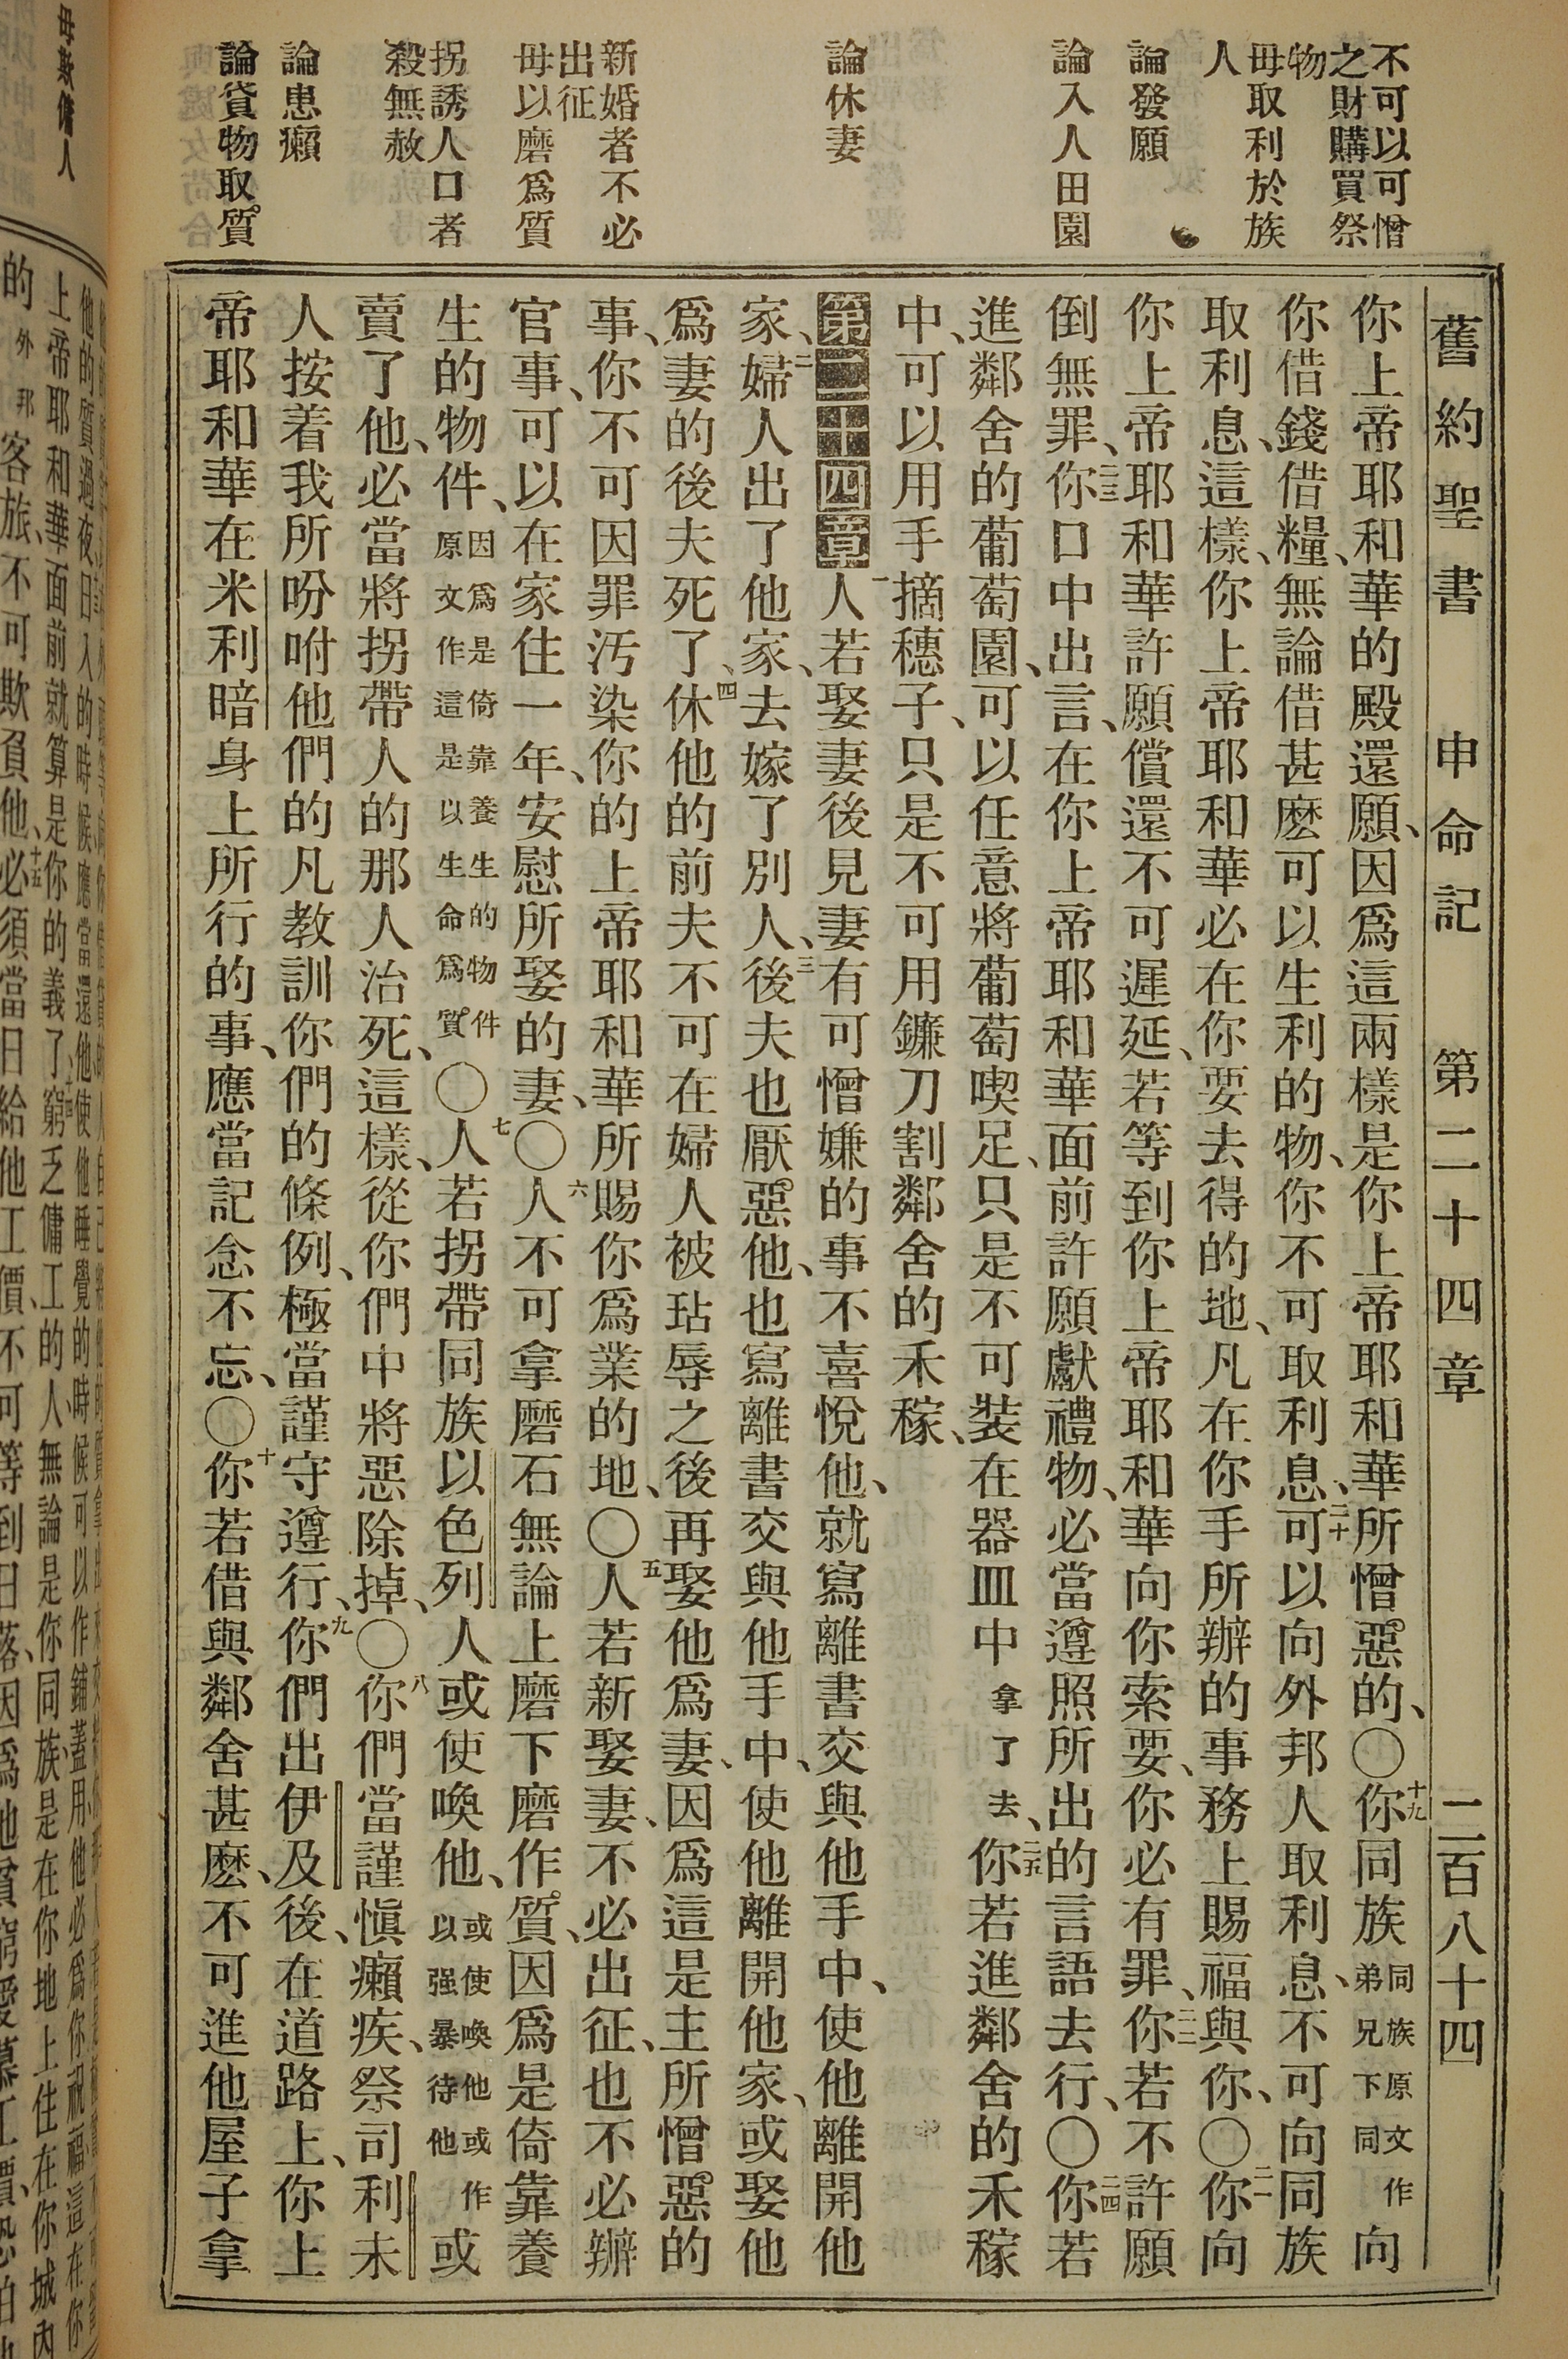 不可以可憎
之財購買祭
物
毋取利於族
人
論發願
論入人田園
論休妻
新婚者不必
出征
毋以磨爲質
拐誘人口者
殺無赦
論患癩
論貸物取質
舊約聖書　申命記　第二十四章　二百八十四
你上帝耶和華的殿還願、因爲這兩樣是你上帝耶和華所憎惡的、〇十九你同族同族原文作弟兄下同向
你借錢借糧、無論借甚麽可以生利的物、你不可取利息、二十可以向外邦人取利息、不可向同族
取利息、這樣、你上帝耶和華必在你要去得的地、凡在你手所辦的事務上賜福與你、〇二一你向
你上帝耶和華許願償還不可遲延、若等到你上帝耶和華向你索要、你必有罪、二二你若不許願
倒無罪、二三你口中出言、在你上帝耶和華面前許願獻禮物、必當遵照所出的言語去行、〇二四你若
進鄰舍的葡萄園、可以任意將葡萄喫足、只是不可裝在器皿中拿了去、二五你若進鄰舍的禾稼
中、可以用手摘穗子、只是不可用鐮刀割鄰舍的禾稼、
第二十四章一人若娶妻後見妻有可憎嫌的事不喜悅他、就寫離書交與他手中、使他離開他
家、二婦人出了他家、去嫁了別人、三後夫也厭惡他、也寫離書交與他手中、使他離開他家、或娶他
爲妻的後夫死了、四休他的前夫不可在婦人被玷辱之後再娶他爲妻、因爲這是主所憎惡的
事、你不可因罪汚染你的上帝耶和華所賜你爲業的地、〇五人若新娶妻、不必出征、也不必辦
官事、可以在家住一年、安慰所娶的妻、〇六人不可拿磨石無論上磨下磨作質、因爲是倚靠養
生的物件、因爲是倚靠養生的物件原文作這是以生命爲質〇七人若拐帶同族以色列人或使喚他、或使喚他或作以强暴待他或
賣了他、必當將拐帶人的那人治死、這樣、從你們中將惡除掉、〇八你們當謹愼癩疾、祭司利未
人按着我所吩咐他們的凡教訓你們的條例、極當謹守遵行、九你們出伊及後、在道路上、你上
帝耶和華在米利暗身上所行的事、應當記念不忘、〇十你若借與鄰舍甚麽、不可進他屋子拿
毋欺傭人
上帝耶和華面前就算是你的義了、窮乏傭工的人、無論是你同族、是在你地上住在你城內
的外邦客旅、不可欺負他、十五必須當日給他工價、不可等到日落、因爲他貧窮